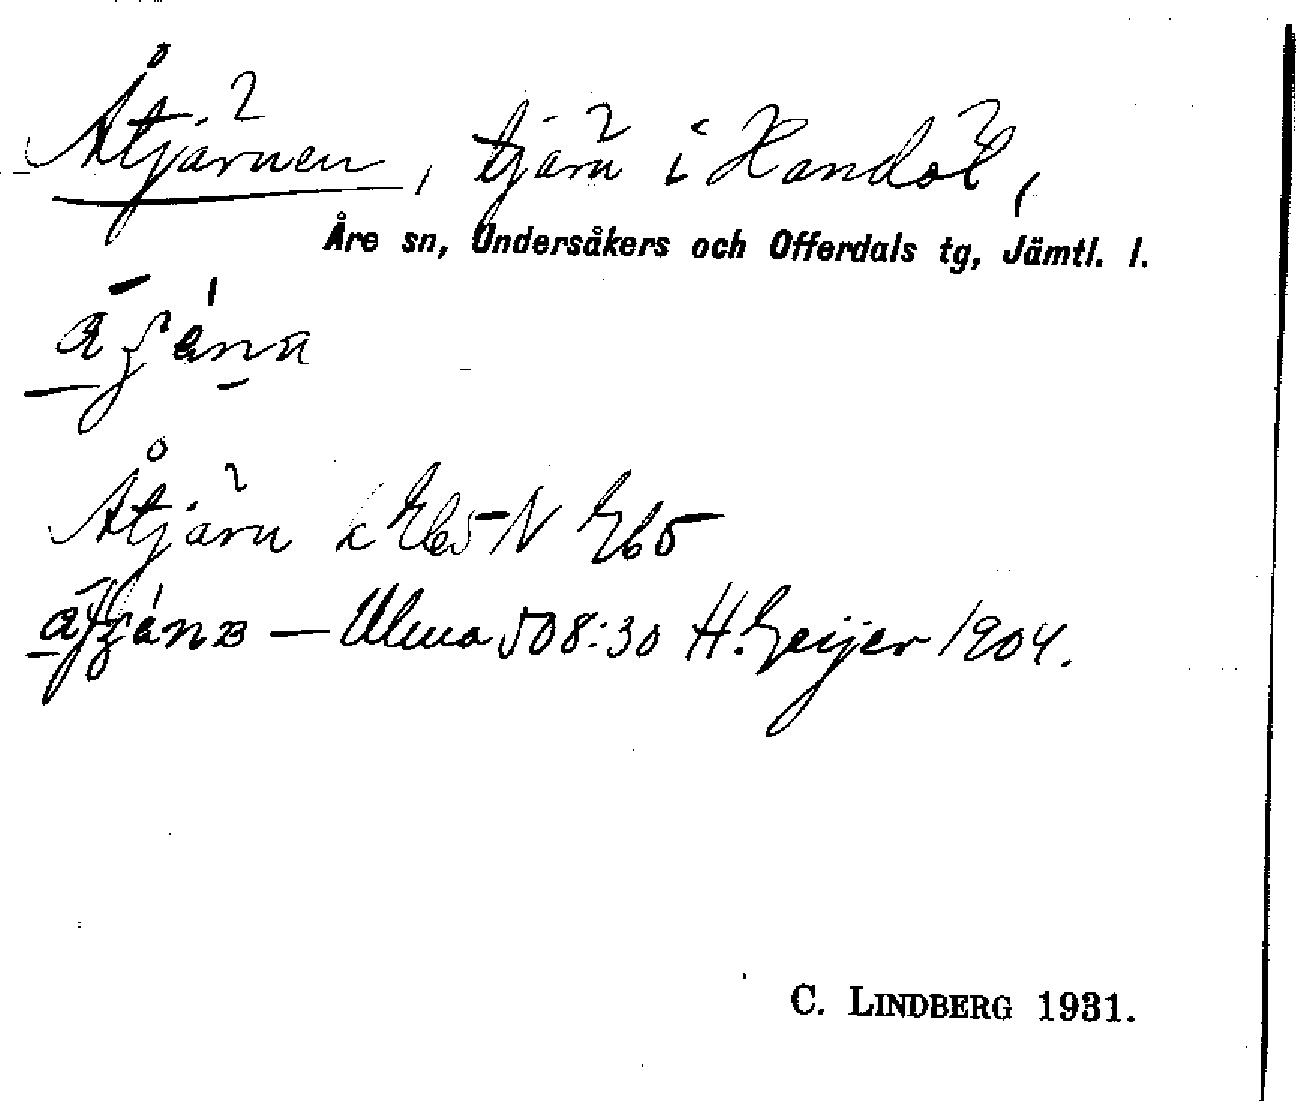 Åtjärnen, tjärn i Handöl,
Åre sn, Undersåkers och Offerdals tg, Jämtl. l.
Åtjärn
— Ulma 508:30 H. Geijer 1904.
C. LINDBERG 1931.